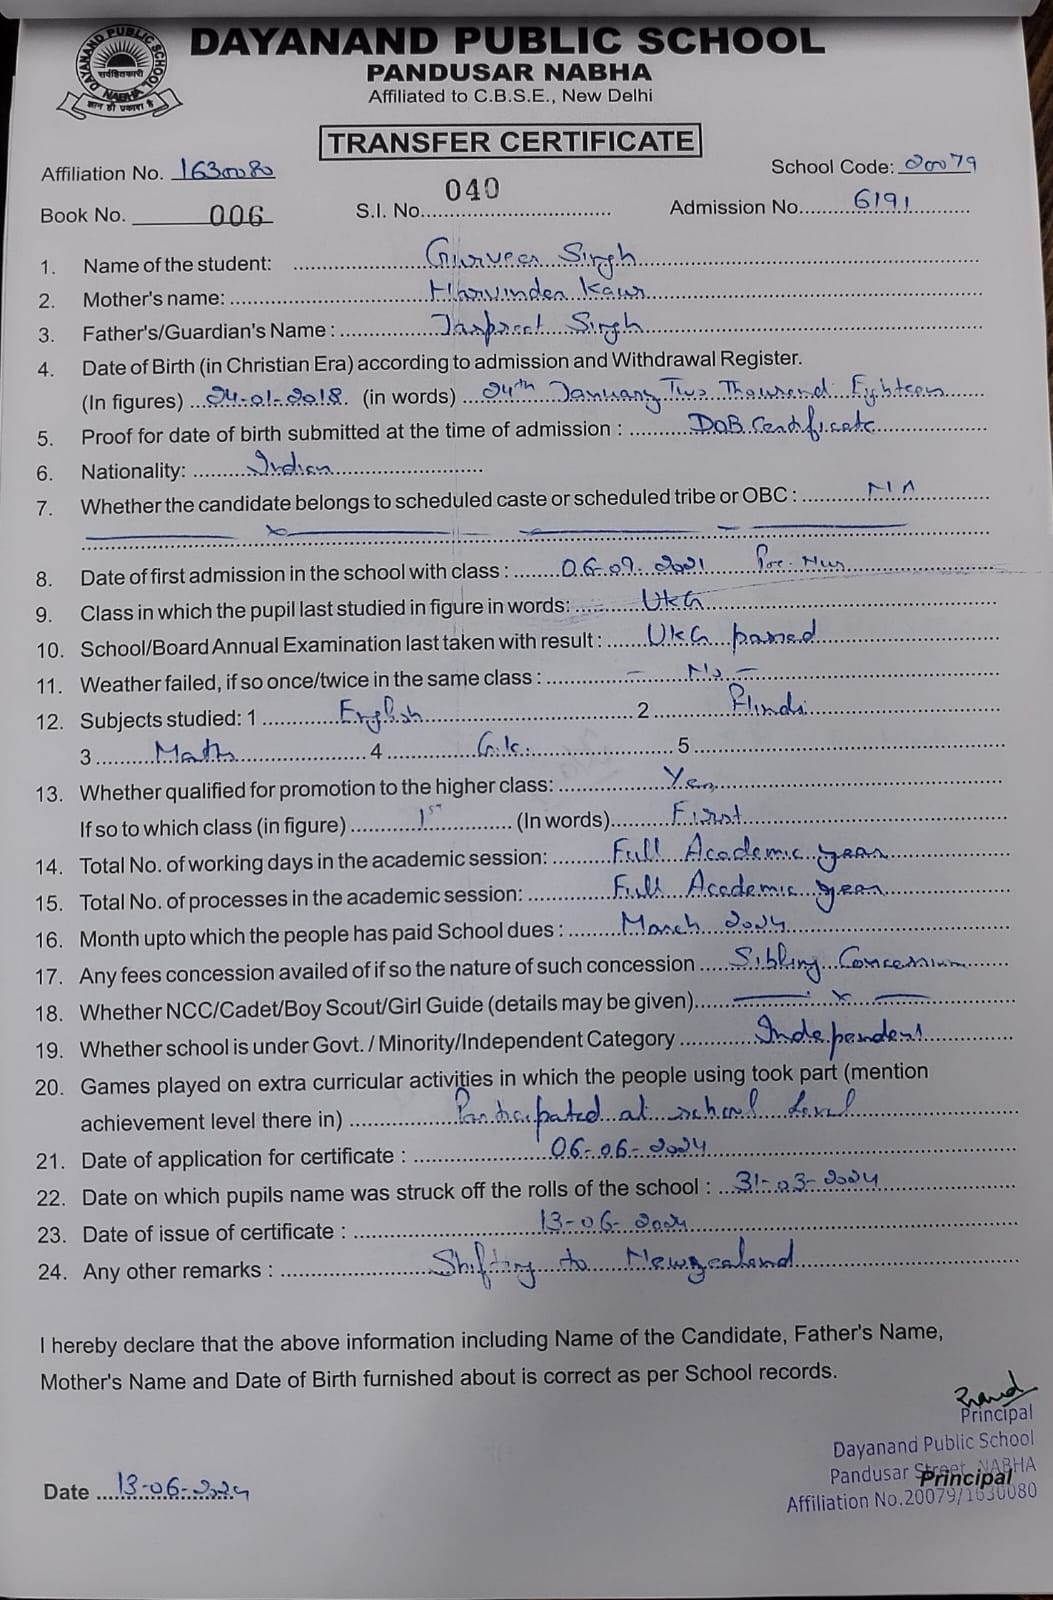 DAYANAND PUBLIC SCHOOL
PANDUSAR NABHA
Affiliated to C.B.S.E., New Delhi
DAYANAND PUBLIC SCHOOL
सर्वहितकारी
NABHA
ज्ञान ही प्रकाश है
TRANSFER CERTIFICATE
Affiliation No. 1630080 School Code: 20079
Book No. 006 S.I. No. 040 Admission No. 6191
1. Name of the student: Gurveer Singh
2. Mother's name: Harvinder Kaur
3. Father's/Guardian's Name : Jaspreet Singh
4. Date of Birth (in Christian Era) according to admission and Withdrawal Register.
(In figures) 24-01-2018 (in words) 24th January Two Thousand Eighteen
5. Proof for date of birth submitted at the time of admission : DOB Certificate
6. Nationality: Indian
7. Whether the candidate belongs to scheduled caste or scheduled tribe or OBC : NA
8. Date of first admission in the school with class : 06-09-2021 Pre-Nur
9. Class in which the pupil last studied in figure in words: UKG
10. School/Board Annual Examination last taken with result : UKG passed
11. Weather failed, if so once/twice in the same class : - No -
12. Subjects studied: 1 English 2 Hindi
3 Math 4 G.k. 5
13. Whether qualified for promotion to the higher class: Yes
If so to which class (in figure) 1st (In words) First
14. Total No. of working days in the academic session: Full Academic year
15. Total No. of processes in the academic session: Full Academic year
16. Month upto which the people has paid School dues : March 2024
17. Any fees concession availed of if so the nature of such concession Sibling Concession
18. Whether NCC/Cadet/Boy Scout/Girl Guide (details may be given) — x —
19. Whether school is under Govt. / Minority/Independent Category Independent
20. Games played on extra curricular activities in which the people using took part (mention
achievement level there in) Participated at school level
21. Date of application for certificate : 06-06-2024
22. Date on which pupils name was struck off the rolls of the school : 31-03-2024
23. Date of issue of certificate : 13-06-2024
24. Any other remarks : Shifting to Newzealand
I hereby declare that the above information including Name of the Candidate, Father's Name,
Mother's Name and Date of Birth furnished about is correct as per School records.
Principal
Dayanand Public School
Pandusar Street, NABHA
Principal
Affiliation No.20079/1630080
Date 13-06-2024